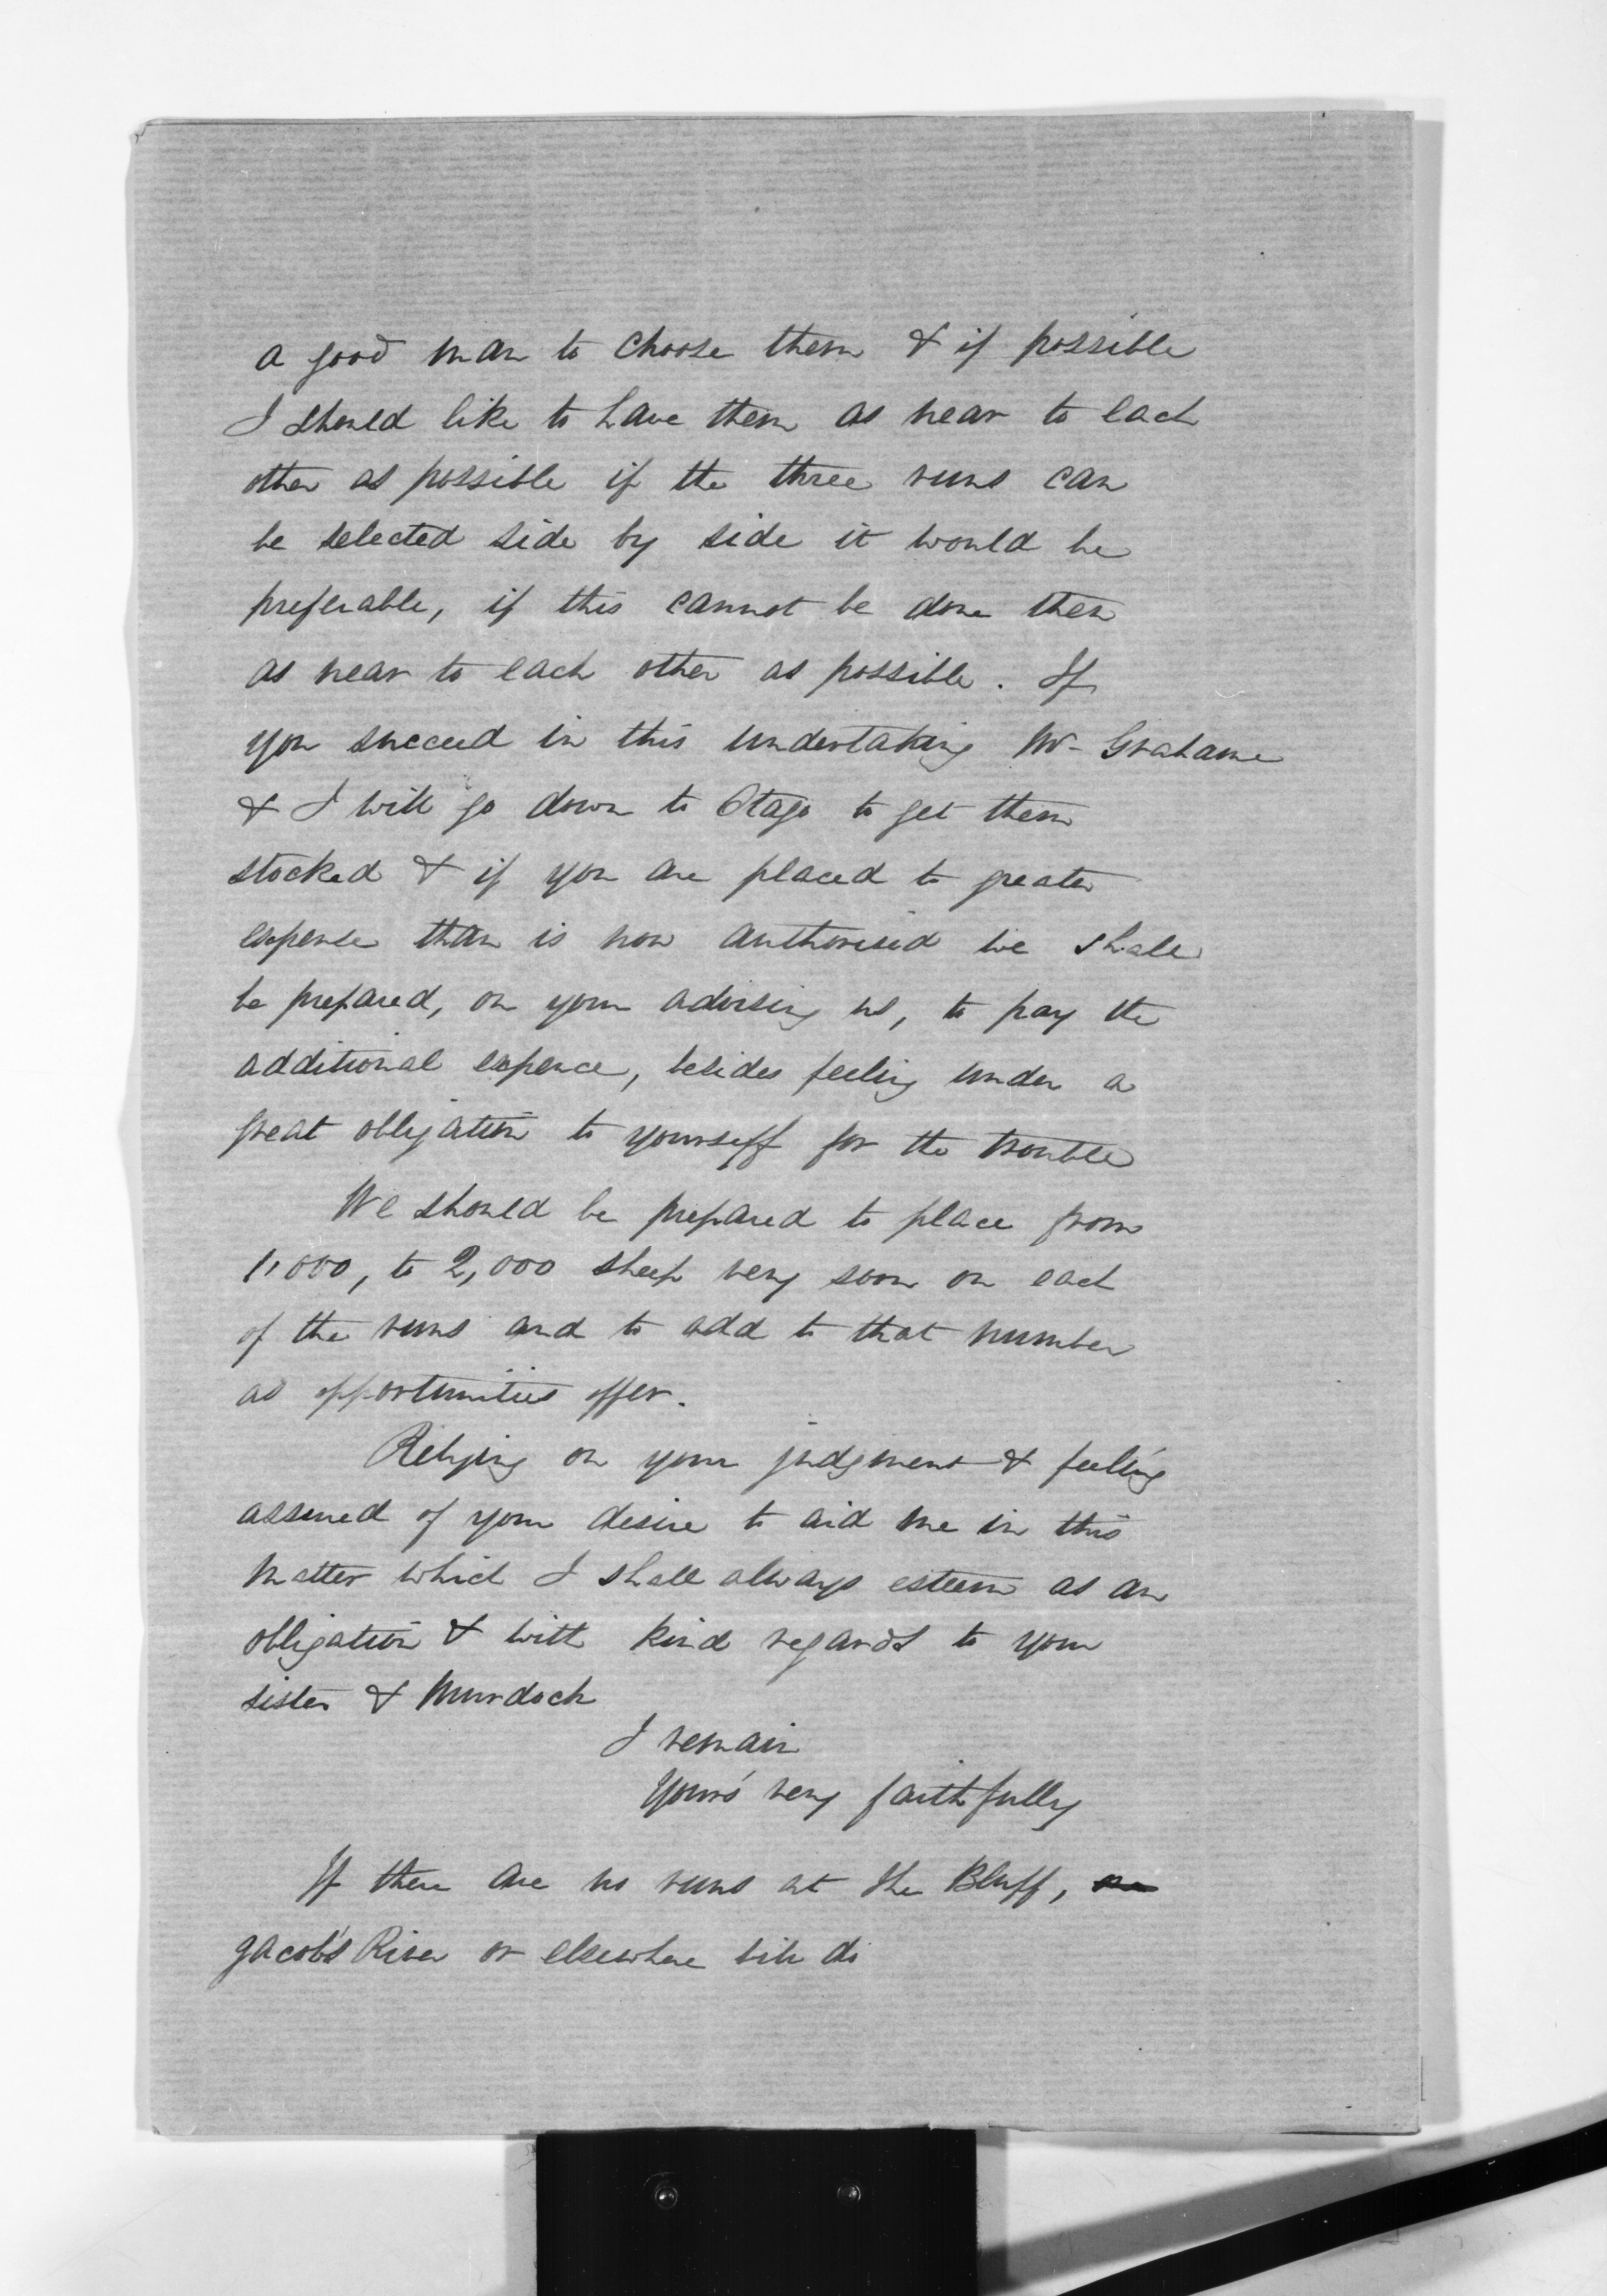 a good man to choose them & if possible
I should like to have them as near to each
other as possible if the three runs can
be selected side by side it would be
preferable, if this cannot be done then
as near to each other as possible. If
you succeed in this undertaking Mr- Grahame
& I will go down to Otago to get them
stocked & if you are placed to greater
expense than is now authorised we shall
be prepared, on your advising us, to pay the
additional expence, besides feeling under a
great obligation to yourself for the trouble
We should be prepared to place from
1,000, to 2,000 sheep very soon on each
of the runs and to add to that number
as opportunities offer.
Relying on your judgment & feeling
assured of your desire to aid me in this
matter which I shall always esteem as an
obligation & with kind regards to your
sister & Murdoch
I remain
Your's very faithfully
If there are no runs at the Bluff,
Jacob's River or elsewhere will do